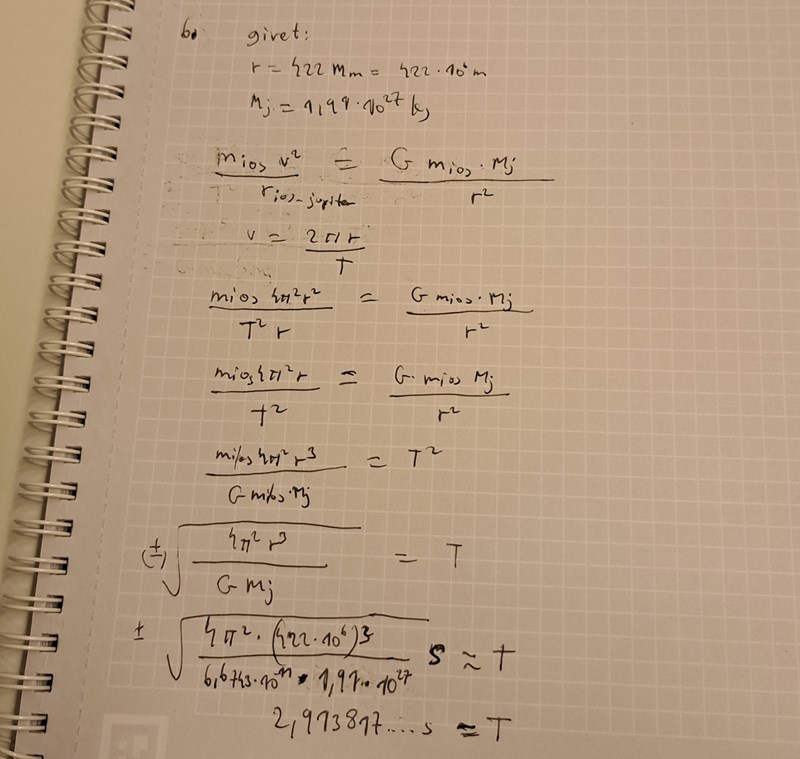 b. givet:
r = 422 Mm = 422 · 10⁶ m
Mj = 1,99 · 10²⁷ kg
(mios v²) / (rios-jupiter) = (G mios · Mj) / r²
v = 2πr / T
(mios 4π²r²) / (T² r) = (G mios · Mj) / r²
(mios 4π² r) / T² = (G · mios Mj) / r²
(mios 4π² r³) / (G mios · Mj) = T²
(±) √((4π² r³) / (G Mj)) = T
± √((4π² · (422 · 10⁶)³) / (6,6743 · 10⁻¹¹ · 1,99 · 10²⁷)) s ≈ T
2,973817.... s ≈ T